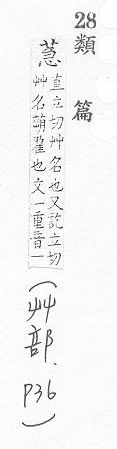 28類篇
直立切艸名也又訖立切
艸名萠雚也文一重音一
(艸部. P36)